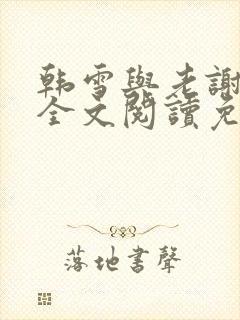 韩雪與老謝
全文閱讀免
落地書聲